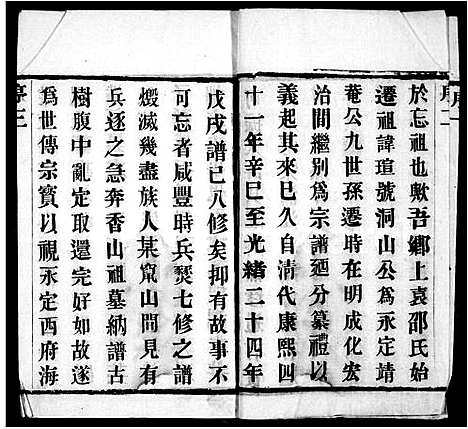 序二
於忘祖也歟吾鄉上袁邵氏始
遷祖諱瑄號洞山公爲永定靖
菴公九世孫遷時在明成化宏
治間繼别爲宗譜廼分纂禮以
義起其來以久自清代康熙四
十一年辛巳至光緒二十四年
戊戌譜已八修矣抑有故事不
可忘者咸豐時兵燹七修之譜
燬滅幾盡族人某竄山間見有
兵逐之急奔香山祖墓納譜古
樹腹中亂定取還完好如故遂
爲世傳宗寳以視永定西府海
序三